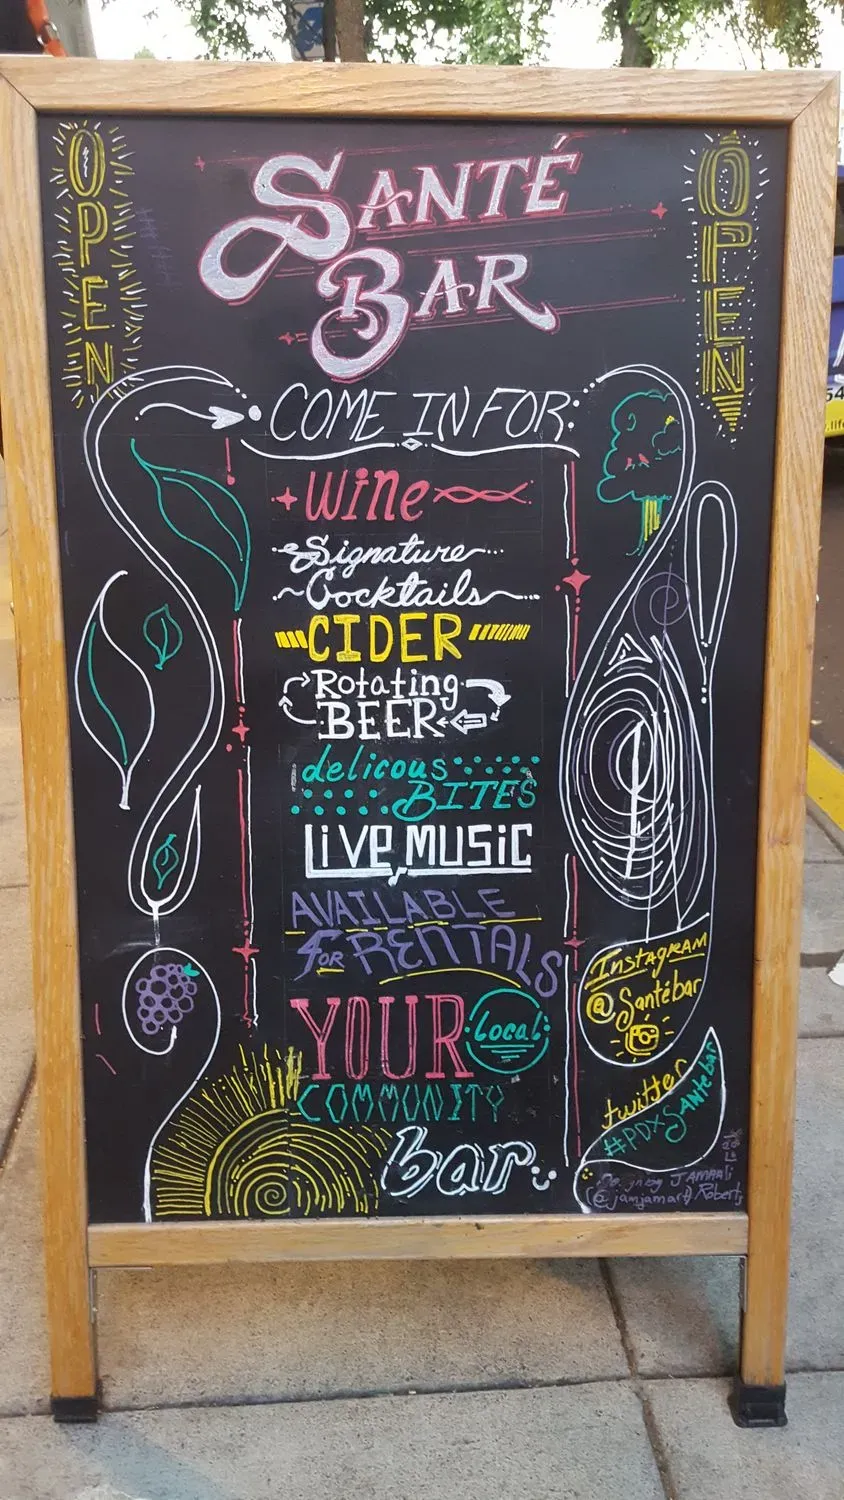 OPEN
OPEN
SANTÉ
BAR
COME IN FOR:
Wine
Signature
Cocktails
CIDER
Rotating
BEER
delicous
BITES
LIVE MUSIC
AVAILABLE
FOR RENTALS
YOUR Local
COMMUNITY
bar
INSTAGRAM
@Santébar
twitter
#PDXSANtebar
JAMAALi
@jamjamart Roberts